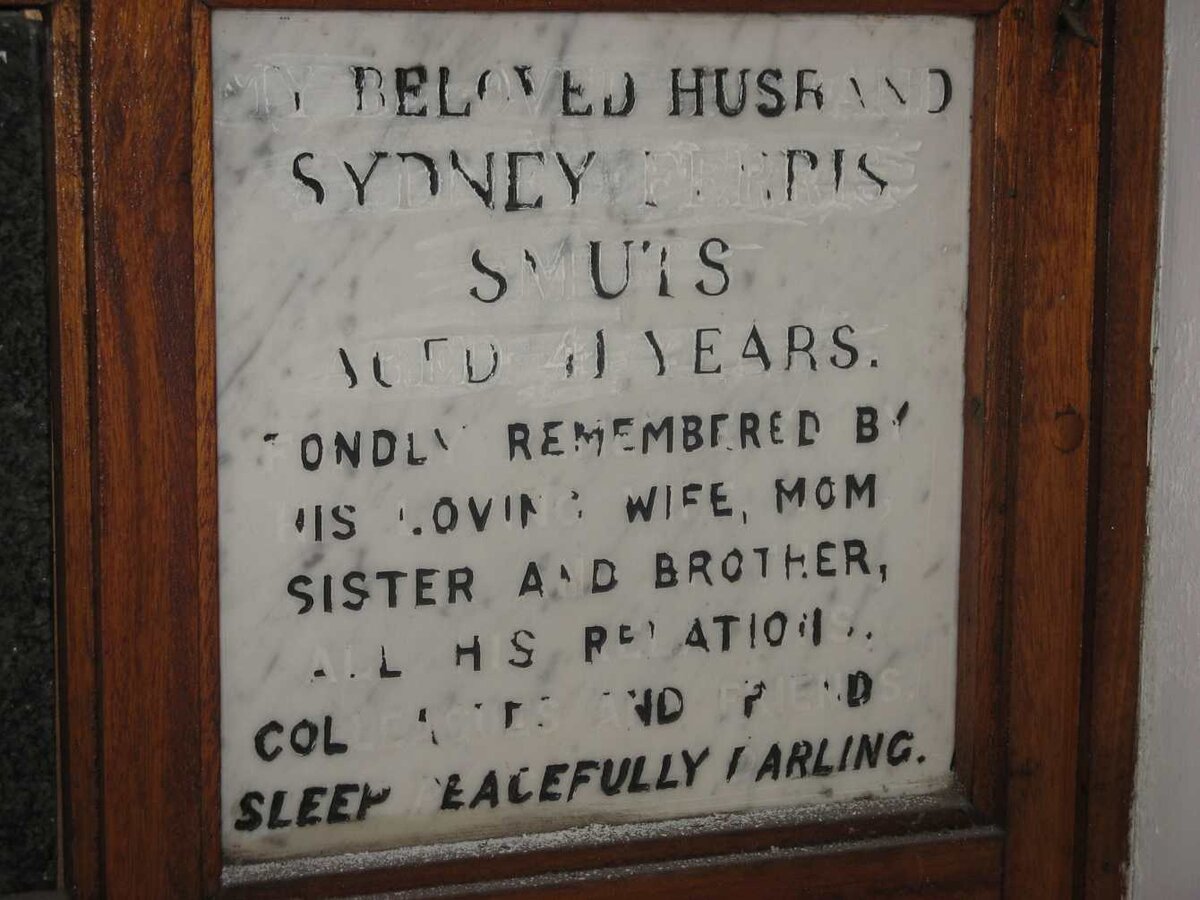 MY BELOVED HUSBAND
SYDNEY FERRIS
SMUTS
AGED 41 YEARS.
FONDLY REMEMBERED BY
HIS LOVING WIFE, MOM,
SISTER AND BROTHER,
ALL HIS RELATIONS,
COLLEAGUES AND FRIENDS.
SLEEP PEACEFULLY DARLING.